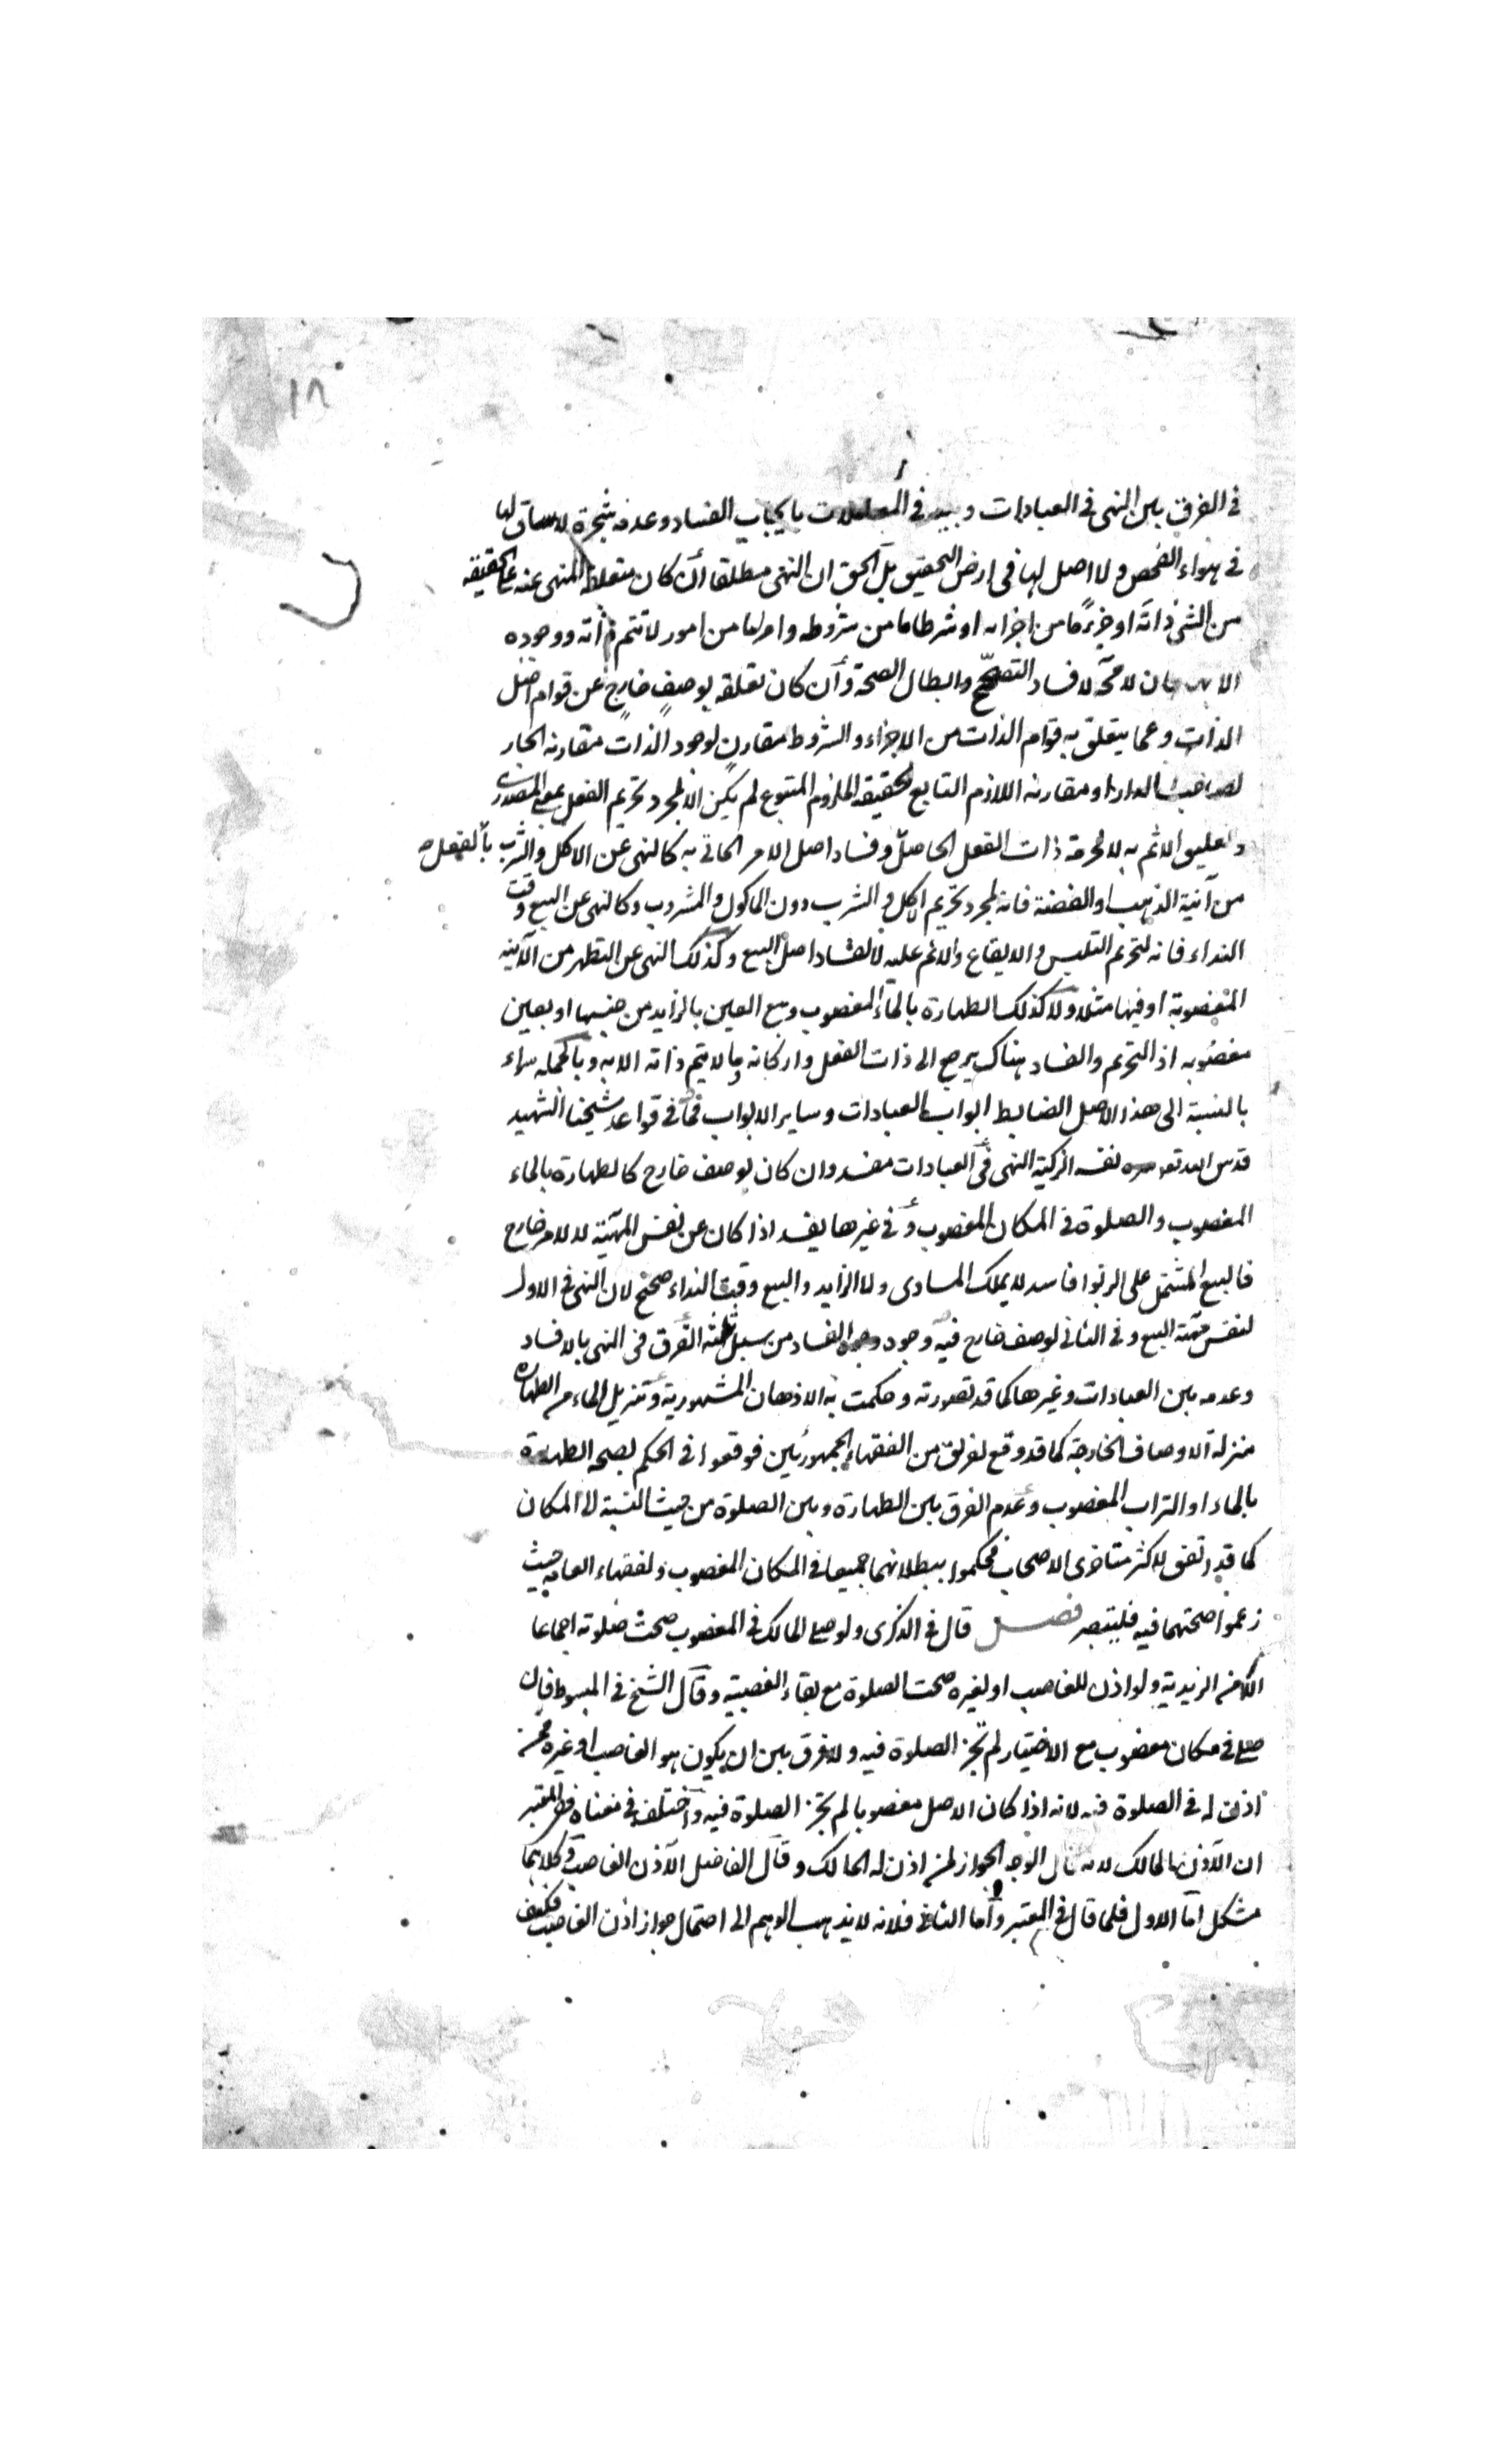 ١٨
في الفرق بين النهى في العبادات وبينه في المعاملات بايجاب الفساد وعدمه شجرة لا ساق لها
في هواء الفحص ولا اصل لها في ارض التحقيق بل الحق ان النهى مطلقا ان كان متعلقه المنهى عنه على الحقيقه
من الشئ ذاته او جزءً ما من اجزائه او شرطا ما من شروطه وامرا ما من امور لا تتم ذاته ووجوده
الا بها كان لا محة لافساد التصحّح وابطال الصحة وان كان تعلقه بوصفٍ خارجٍ عن قوام اصل
الذات وعما يتعلق به قوام الذات من الاجزاء والشروط مقارنٍ لوجود الذات مقارنه الجار
لصاحب الدار او مقارنه اللازم التابع لحقيقه الملزوم المتبوع لم يكن الا لمجرد تحريم الفعل بمعنى المصدرى
وتعليق الاثم به لا لحرمة ذات الفعل الحاصل وفساد اصل الامر الماتى به كالنهى عن الاكل والشرب بالفعل
من آنية الذهب او الفضة فانه لمجرد تحريم الاكل والشرب دون الماكول والمشروب وكالنهى عن البيع وقت
النداء فانه لتحريم التلبس والايقاع والاثم عليه لا لفساد اصل البيع وكذلك النهى عن التطهر من الآنيه
المغصوبة او فيها مثلا ولا كذلك الطهارة بالماء المغصوب وبيع العين بالزايد من جنسها او بعين
مغصوبه اذ التحريم والفساد هناك يرجع الى ذات الفعل واركانه وما لا يتم ذاته الا به وبالجمله سواء
بالنسبة الى هذا الاصل الضابط ابواب العبادات وساير الابواب فما في قواعد شيخنا الشهيد
قدس الله تع نفسه الزكية النهى في العبادات مفسد وان كان بوصف خارج كالطهارة بالماء
المغصوب والصلوة في المكان المغصوب وفي غيرها يفسد اذا كان عن نفس المهية لا لامر خارج
فالبيع المشتمل على الربوا فاسد لا يملك المساوى ولا الزايد والبيع وقت النداء صحيح لان النهى في الاول
لنفس مهية البيع وفي الثاني لوصف خارج فيه وجود وجوه الفساد من سبل ثلثه الفرق في النهى بالافساد
وعدمه بين العبادات وغيرها كما قد تصورته وحكمت به الاذهان المشهورية وتنزيل الماء من الطهارة
منزلة الاوصاف الخارجة كما قد وقع لفريق من الفقهاء الجمهوريين فوقعوا في الحكم بصحه الطهارة
بالماء او التراب المغصوب وعدم الفرق بين الطهارة وبين الصلوة من حيث النسبة الى المكان
كما قد اتفق لاكثر متاخرى الاصحاب فحكموا ببطلانهما جميعا في المكان المغصوب ولفقهاء العامه حيث
زعموا صحتهما فيه فليتبصر فصل قال في الذكرى ولو صلى المالك في المغصوب صحت صلوته اجماعا
الا من الزيدية ولو اذن للغاصب او لغيره صحت الصلوة مع بقاء الغصبية وقال الشيخ في المبسوط فان
صلى في مكان مغصوب مع الاختيار لم تجز الصلوة فيه ولا فرق بين ان يكون هو الغاصب او غيره ممن
اذن له في الصلوة فيه لانه اذا كان الاصل مغصوبا لم تجز الصلوة فيه واختلف في معناه ففى المعتبر
ان الآذن المالك لانه قال الوجه الجواز لمن اذن له المالك وقال الفاضل الآذن الغاصب وكلاهما
مشكل اما الاول فلما قال في المعتبر واما الثاني فلانه لا يذهب الوهم الى احتمال جواز اذن الغاصب فكيف